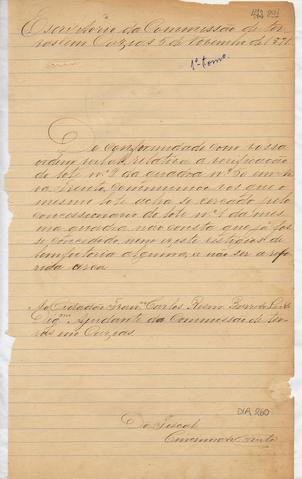 Escriptorio da Commissão de ter
ras em Caxias 5 de Novembro de 1891
1º tomo
Em conformidade com vossa
ordem verbal, relativa a verificação
do lote nº 2 da quadra nº 30
communico vos que o
mesmo lote acha se cercado pelo
concessionario do lote nº 1 da mes
ma quadra não consta que já fos
se concedido, nem existe vestigios de
bemfeitoria alguma, a não ser a refe
rida cerca
Ao Cidadão Franco Carlos
Ajudante da Commissão de ter
ras em Caxias
Do Fiscal
DIA 260